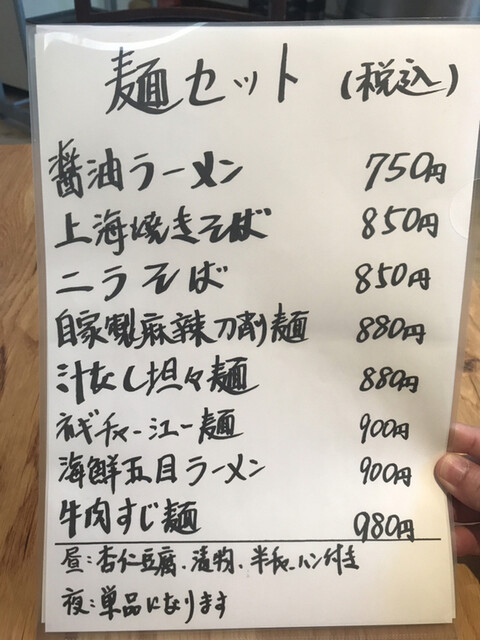 麺セット (税込)
醤油ラーメン 750円
上海焼きそば 850円
ニラそば 850円
自家製麻辣刀削麺 880円
汁なし坦々麺 880円
ネギチャーシュー麺 900円
海鮮五目ラーメン 900円
牛肉すじ麺 980円
昼:杏仁豆腐、漬物、半チャーハン付き
夜:単品になります